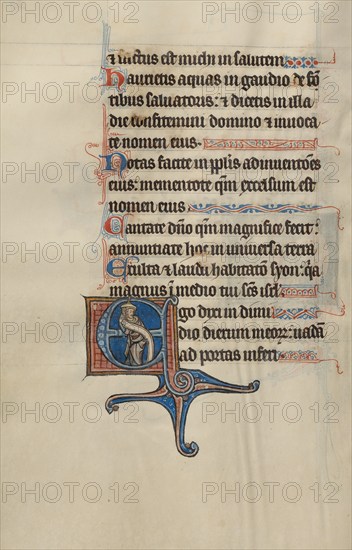 & factus est michi in salutem
haurietis aquas in gaudio de fō
tibus saluatoris: & dicetis in illa
die confitemini domino & inuoca
te nomen eius
Notas facite in pplis adinuentōes
eius: mementote qm excelsum est
nomen eius
Cantate dño qm magnifice fecit:
annuntiate hoc in uniuersa terra
Exulta & lauda habitatō syon: qa
magnus ī medio tui scūs isrl
Ego dixi in dimi
dio dierum meoꝝ: uadam
ad portas inferi
PHOTO 12